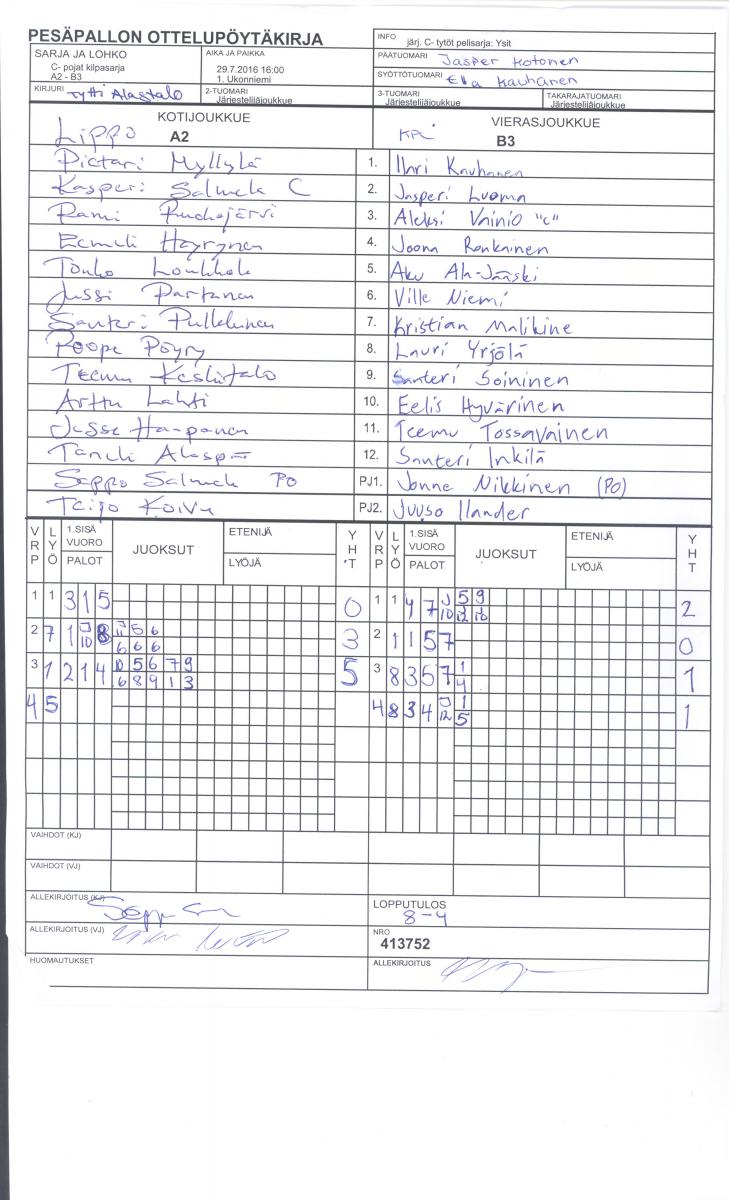 PESÄPALLON OTTELUPÖYTÄKIRJA
INFO järj. C- tytöt pelisarja: Ysit
SARJA JA LOHKO
C- pojat kilpasarja
A2 - B3
AIKA JA PAIKKA
29.7.2016 16:00
1. Ukonniemi
PÄÄTUOMARI Jasper Kotonen
SYÖTTÖTUOMARI Ella Kauhanen
KIRJURI Tytti Alastalo
2-TUOMARI
Järjestelijäjoukkue
3-TUOMARI
Järjestelijäjoukkue
TAKARAJATUOMARI
Järjestelijäjoukkue
KOTIJOUKKUE VIERASJOUKKUE
Lippo A2 KPL B3
Pietari Myllylä 1. Ilari Kauhanen
Kasperi Salmela C 2. Jasperi Luoma
Rami Ruohojärvi 3. Aleksi Vainio "c"
Eemeli Häyrynen 4. Joona Ronkainen
Touko Loukkola 5. Aku Ala-Jääski
Jussi Partanen 6. Ville Niemi
Santeri Pulkkinen 7. Kristian Malikine
Roope Pöyry 8. Lauri Yrjölä
Teemu Keskitalo 9. Santeri Soininen
Arttu Lahti 10. Eelis Hyvärinen
Jesse Haapanen 11. Teemu Tossavainen
Taneli Alaspää 12. Santeri Inkilä
Seppo Salmela PO PJ1. Jonne Nikkinen (PO)
Teijo Koivu PJ2. Juuso Ilander
VRP LYÖ 1.SISÄ VUORO PALOT JUOKSUT ETENIJÄ LYÖJÄ YHT VRP LYÖ 1.SISÄ VUORO PALOT JUOKSUT ETENIJÄ LYÖJÄ YHT
1 1 3 1 5 0 1 1 4 7 J 10 5 9 12 10 2
2 7 1 J 10 8 J 11 5 6 6 6 6 3 2 1 1 5 7 0
3 1 2 1 4 10 5 6 7 9 6 8 9 1 3 5 3 8 3 5 7 1 4 1
4 5 4 8 3 4 J 12 1 5 1
VAIHDOT (KJ)
VAIHDOT (VJ)
ALLEKIRJOITUS (KJ)
LOPPUTULOS
8-4
ALLEKIRJOITUS (VJ)
NRO
413752
HUOMAUTUKSET
ALLEKIRJOITUS